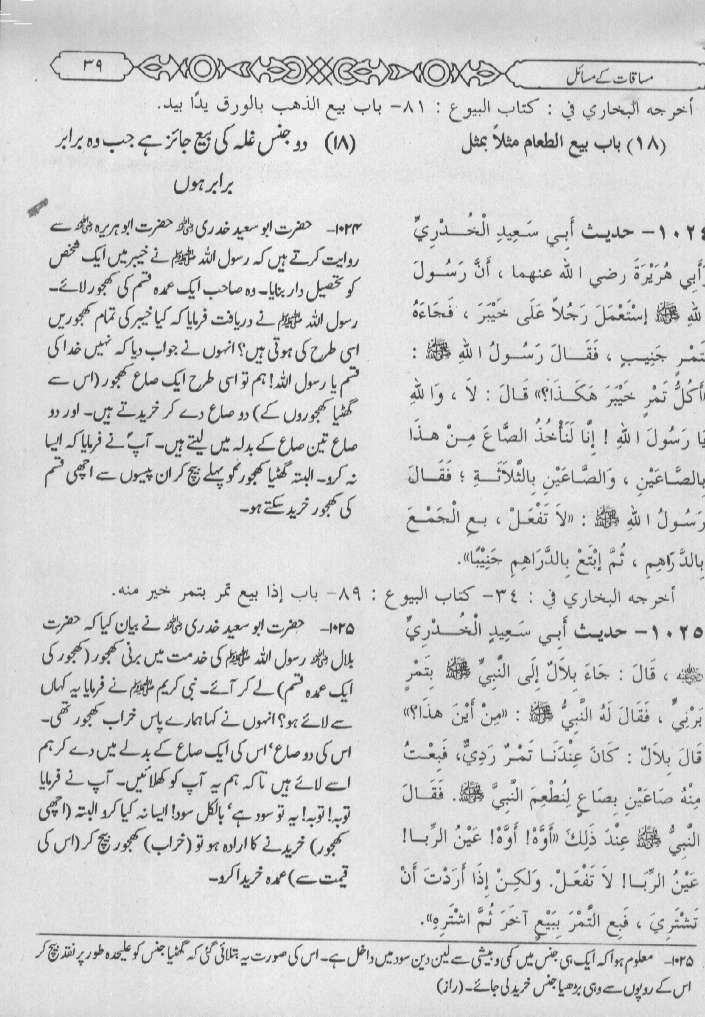 مساقات کے مسائل
۳۹
أخرجه البخاري في : كتاب البيوع : ٨١- باب بيع الذهب بالورق يدًا بيد.
(١٨) باب بيع الطعام مثلاً بمثل
١٠٢٤- حديث أَبِي سَعِيدٍ الْخُدْرِيِّ
وَأَبِي هُرَيْرَةَ رضي الله عنهما ، أَنَّ رَسُولَ
اللهِ ﷺ إسْتَعْمَلَ رَجُلاً عَلَى خَيْبَرَ ، فَجَاءَهُ
بِتَمْرٍ جَنِيبٍ ، فَقَالَ رَسُولُ اللهِ ﷺ :
«أَكُلُّ تَمْرِ خَيْبَرَ هَكَذَا؟» قَالَ : لاَ ، وَاللهِ
يَا رَسُولَ اللهِ ! إِنَّا لَنَأْخُذُ الصَّاعَ مِنْ هذَا
بِالصَّاعَيْنِ ، وَالصَّاعَيْنِ بِالثَّلاَثَةِ ؛ فَقَالَ
رَسُولُ اللهِ ﷺ : «لاَ تَفْعَلْ ، بِعِ الْجَمْعَ
بِالدَّرَاهِمِ ، ثُمَّ إبْتَعْ بِالدَّرَاهِمِ جَنِيبًا».
(۱۸) دو جنس غلہ کی بیع جائز ہے جب وہ برابر
برابر ہوں
۱۰۲۴- حضرت ابو سعید خدری رضی اللہ عنہ حضرت ابو ہریرہ رضی اللہ عنہ سے
روایت کرتے ہیں کہ رسول اللہ ﷺ نے خیبر میں ایک شخص
کو تحصیل دار بنایا۔ وہ صاحب ایک عمدہ قسم کی کھجور لائے۔
رسول اللہ ﷺ نے دریافت فرمایا کہ کیا خیبر کی تمام کھجوریں
اسی طرح کی ہوتی ہیں؟ انہوں نے جواب دیا کہ نہیں خدا کی
قسم یا رسول اللہ! ہم تو اسی طرح ایک صاع کھجور (اس سے
گھٹیا کھجوروں کے) دو صاع دے کر خریدتے ہیں۔ اور دو
صاع تین صاع کے بدلہ میں لیتے ہیں۔ آپؐ نے فرمایا کہ ایسا
نہ کرو۔ البتہ گھٹیا کھجور کو پہلے بیچ کر ان پیسوں سے اچھی قسم
کی کھجور خرید سکتے ہو۔
أخرجه البخاري في : ٣٤- كتاب البيوع : ٨٩- باب إذا بيع تمر بتمر خير منه.
١٠٢٥- حديث أَبِي سَعِيدٍ الْخُدْرِيِّ
رضي الله عنه ، قَالَ : جَاءَ بِلاَلٌ إِلَى النَّبِيِّ ﷺ بِتَمْرٍ
بَرْنِيٍّ ، فَقَالَ لَهُ النَّبِيُّ ﷺ : «مِنْ أَيْنَ هذَا؟»
قَالَ بِلاَلٌ : كَانَ عِنْدَنَا تَمْرٌ رَدِيٌّ، فَبِعْتُ
مِنْهُ صَاعَيْنِ بِصَاعٍ لِنُطْعِمَ النَّبِيَّ ﷺ. فَقَالَ
النَّبِيُّ ﷺ عِنْدَ ذَلِكَ «أَوَّهْ! أَوَّهْ! عَيْنُ الرِّبا!
عَيْنُ الرِّبَا! لاَ تَفْعَلْ. وَلكِنْ إِذَا أَرَدْتَ أَنْ
تَشْتَرِيَ ، فَبِعِ التَّمْرَ بِبَيْعٍ آخَرَ ثُمَّ اشْتَرِهِ».
۱۰۲۵- حضرت ابو سعید خدری رضی اللہ عنہ نے بیان کیا کہ حضرت
بلال رضی اللہ عنہ رسول اللہ ﷺ کی خدمت میں برنی کھجور (کھجور کی
ایک عمدہ قسم) لے کر آئے۔ نبی کریم ﷺ نے فرمایا یہ کہاں
سے لائے ہو؟ انہوں نے کہا ہمارے پاس خراب کھجور تھی۔
اس کی دو صاع‘ اس کی ایک صاع کے بدلے میں دے کر ہم
اسے لائے ہیں تاکہ ہم یہ آپ کو کھلائیں۔ آپ نے فرمایا
توبہ! توبہ! یہ تو سود ہے‘ بالکل سود! ایسا نہ کیا کرو البتہ (اچھی
کھجور) خریدنے کا ارادہ ہو تو (خراب) کھجور بیچ کر (اس کی
قیمت سے) عمدہ خریدا کرو۔
۱۰۲۵- معلوم ہوا کہ ایک ہی جنس میں کمی و بیشی سے لین دین سود میں داخل ہے۔ اس کی صورت یہ بتلائی گئی کہ گھٹیا جنس کو علیحدہ طور پر نقد بیچ کر
اس کے روپوں سے وہی بڑھیا جنس خرید لی جائے۔ (راز)